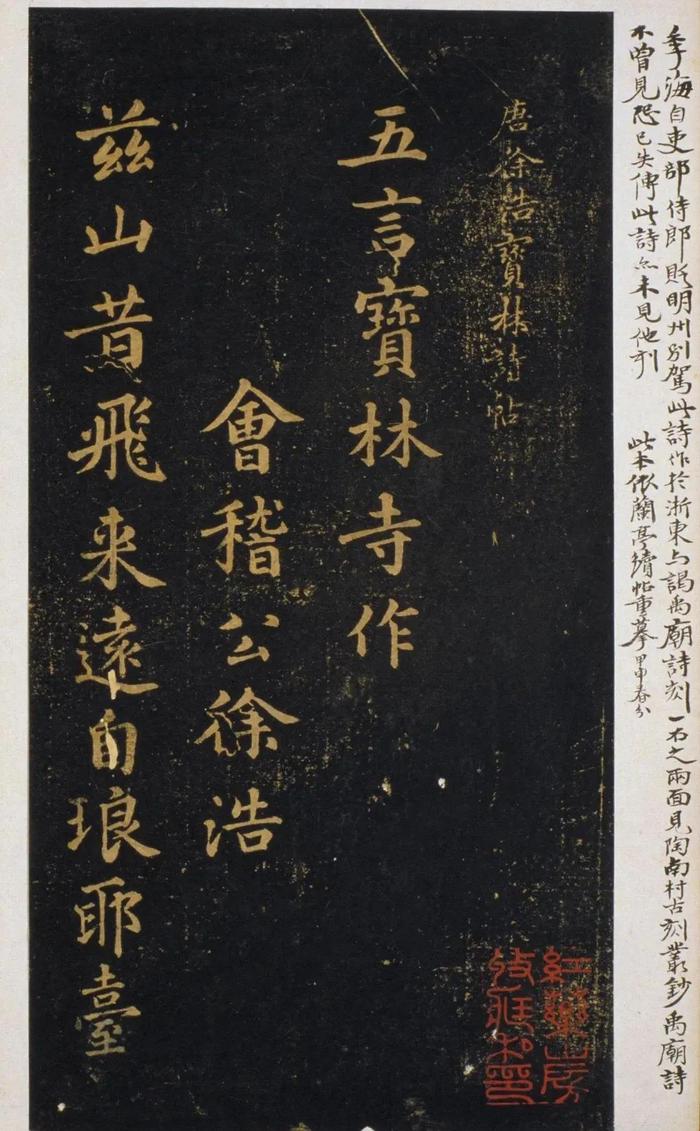 季海自吏部侍郎貶明州別駕此詩作於浙東与謁禹廟詩刻一石之兩面見陶南村古刻叢鈔禹廟詩
不曾見恐已失傳此詩亦未見他刊 此本依蘭亭續帖重摹 甲申春分
唐徐浩寶林詩帖
五言寶林寺作
會稽公徐浩
茲山昔飛来遠自琅耶臺
紅藥山房
收藏私印